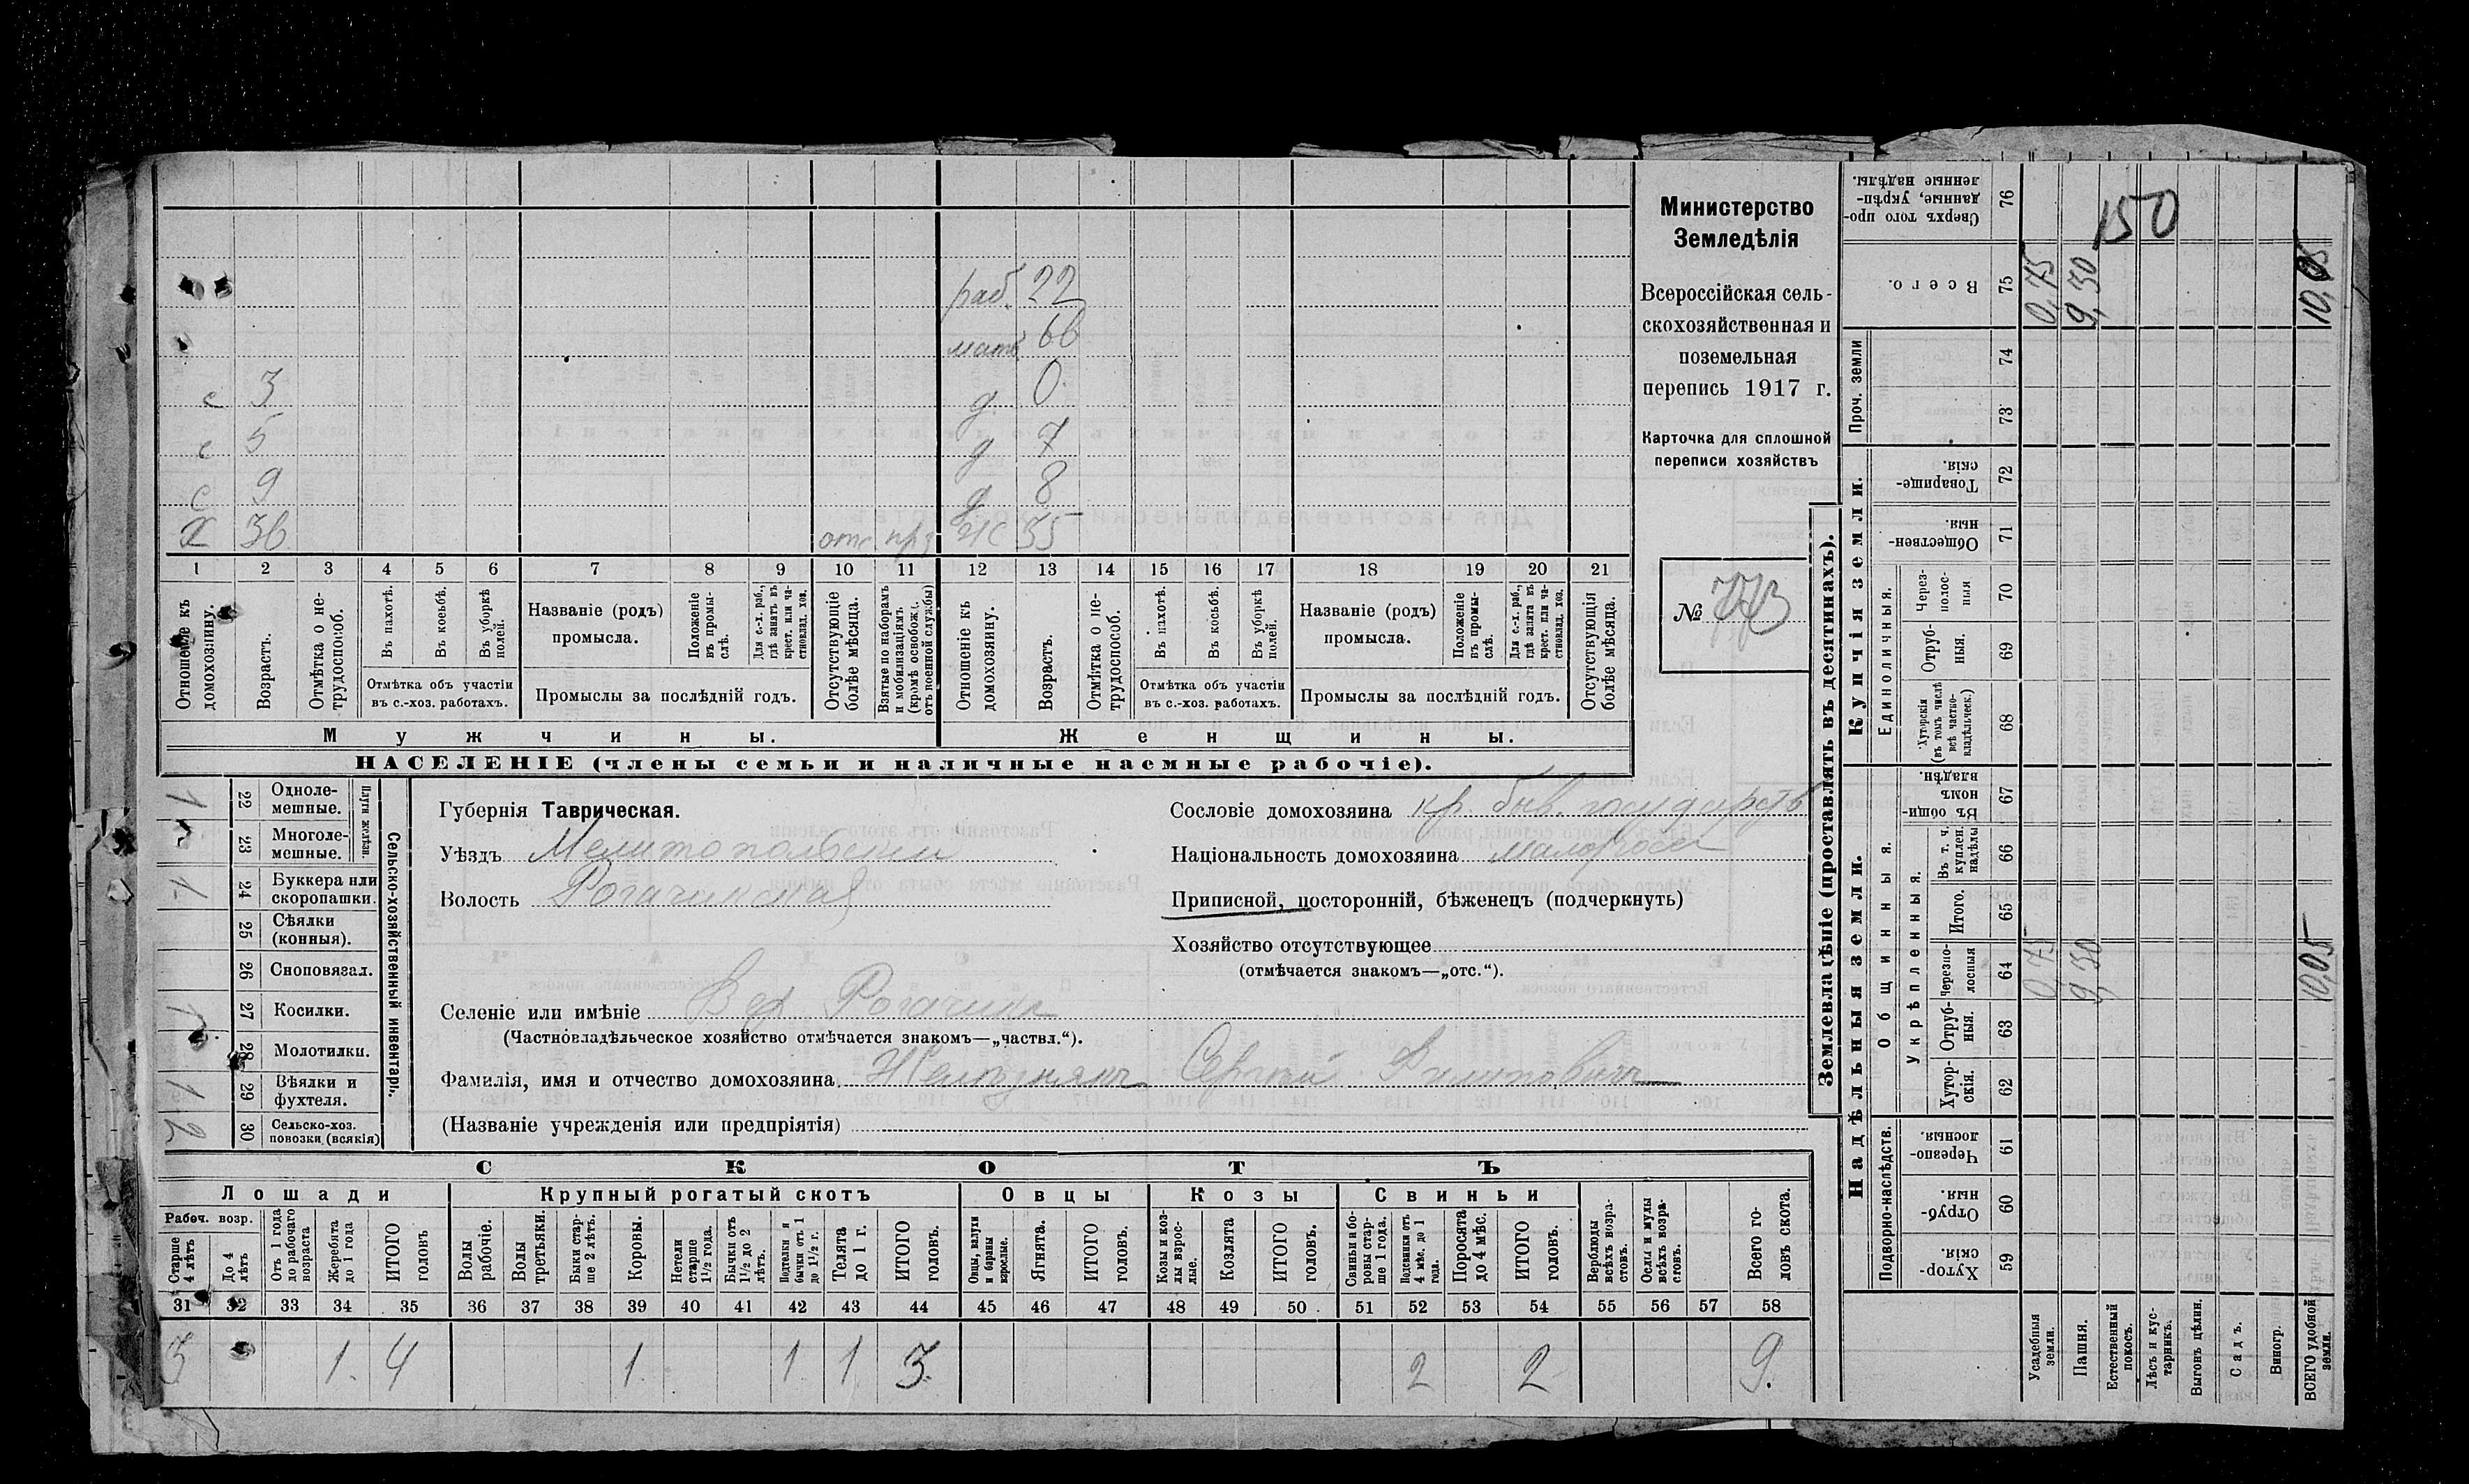 раб. 22
мать 66
с 3 д 0
с 5 д 7
с 9 д 8
Х 36 отс. прз ж 35
1 2 3 4 5 6 7 8 9 10 11 12 13 14 15 16 17 18 19 20 21
Отношеніе къ домохозяину.
Возрастъ.
Отмѣтка о не-трудоспособ.
Въ пахотѣ.
Въ косьбѣ.
Въ уборкѣ полей.
Отмѣтка объ участіи
въ с.-хоз. работахъ.
Названіе (родъ)
промысла.
Положеніе въ промы-слѣ.
Для с.-х. раб., гдѣ занятъ въ крест. или ча-стновлад. хоз.
Промыслы за послѣдній годъ.
Отсутствующіе болѣе мѣсяца.
Взятые по наборамъ и мобилизаціямъ (кромѣ освобожд. отъ военной службы)
Отношеніе къ домохозяину.
Возрастъ.
Отмѣтка о не-трудоспособ.
Въ пахотѣ.
Въ косьбѣ.
Въ уборкѣ полей.
Отмѣтка объ участіи
въ с.-хоз. работахъ.
Названіе (родъ)
промысла.
Положеніе въ промы-слѣ.
Для с.-х. раб., гдѣ занята въ крест. или ча-стновлад. хоз.
Промыслы за послѣдній годъ.
Отсутствующія болѣе мѣсяца.
Мужчины.
Женщины.
НАСЕЛЕНІЕ (члены семьи и наличные наемные рабочіе).
Министерство
Земледѣлія
Всероссійская сель-
скохозяйственная и
поземельная
перепись 1917 г.
Карточка для сплошной
переписи хозяйствъ
№ 773
1 22 Одноле-мешные.
23 Многоле-мешные.
Плуги желѣзн.
1 24 Буккера или скоропашки.
25 Сѣялки (конныя).
26 Сноповязал.
1 27 Косилки.
28 Молотилки.
1 29 Вѣялки и фухтеля.
2 30 Сельско-хоз. повозки (всякія)
Сельско-хозяйственный инвентарь.
Губернія Таврическая.
Уѣздъ Мелитопольскій
Волость Рогачикская
Селеніе или имѣніе Вер Рогачикъ
(Частновладѣльческое хозяйство отмѣчается знакомъ—„частвл.“).
Фамилія, имя и отчество домохозяина Железнякъ Сергѣй Филиповичъ
(Названіе учрежденія или предпріятія)
Сословіе домохозяина кр. быв. государств
Національность домохозяина малоросс
Приписной, посторонній, бѣженецъ (подчеркнуть)
Хозяйство отсутствующее
(отмѣчается знакомъ—„отс.“).
СКОТЪ
Лошади Крупный рогатый скотъ Овцы Козы Свиньи
Рабоч. возр.
Старше 4 лѣтъ
До 4 лѣтъ
Отъ 1 года до рабочаго возраста
Жеребята до 1 года
ИТОГО головъ
Волы рабочіе.
Волы третьяки.
Быки стар-ше 2 лѣтъ.
Коровы.
Нетели старше 1½ года.
Бычки отъ 1½ до 2 лѣтъ.
Подтелки и бычки отъ 1 до 1½ г.
Телята до 1 г.
ИТОГО головъ.
Овцы, валухи и бараны взрослые.
Ягнята.
ИТОГО головъ.
Козы и коз-лы взрос-лые.
Козлята
ИТОГО головъ.
Свиньи и бо-ровы стар-ше 1 года.
Подсвинки отъ 4 мѣс. до 1 года.
Поросята до 4 мѣс.
ИТОГО головъ.
Верблюды всѣхъ возра-стовъ.
Ослы и мулы всѣхъ возра-стовъ.
Всего го-ловъ скота.
31 32 33 34 35 36 37 38 39 40 41 42 43 44 45 46 47 48 49 50 51 52 53 54 55 56 57 58
3 1 4 1 1 1 3 2 2 9
Землевладѣніе (проставлять въ десятинахъ).
Купчія земли.
Надѣльныя земли.
Сверхъ того про-данные, укрѣп-ленные надѣлы. 76
150
Всего. 75 0,75 9,30 10,05
Проч. земли 74
73
Товарище-скія. 72
Обществен-ныя. 71
Единоличныя.
Через-полос-ныя 70
Отруб-ныя. 69
Хуторскія (въ томъ числѣ всѣ частно-владѣльческ.) 68
Общинныя.
Въ общи-номъ владѣн. 67
Въ т. ч. куплен. надѣлы 66
Укрѣпленныя.
Итого. 65
Черезпо-лосныя 64 0,75 9,30 10,05
Отруб-ныя. 63
Хутор-скія. 62
Подворно-наслѣдств.
Черезпо-лосныя. 61
Отруб-ныя. 60
Хутор-скія. 59
Усадебныя земли.
Пашня.
Естественный покосъ.
Лѣсъ и кус-тарникъ.
Выгонъ цѣлин.
Садъ.
Виногр.
ВСЕГО удобной земли.